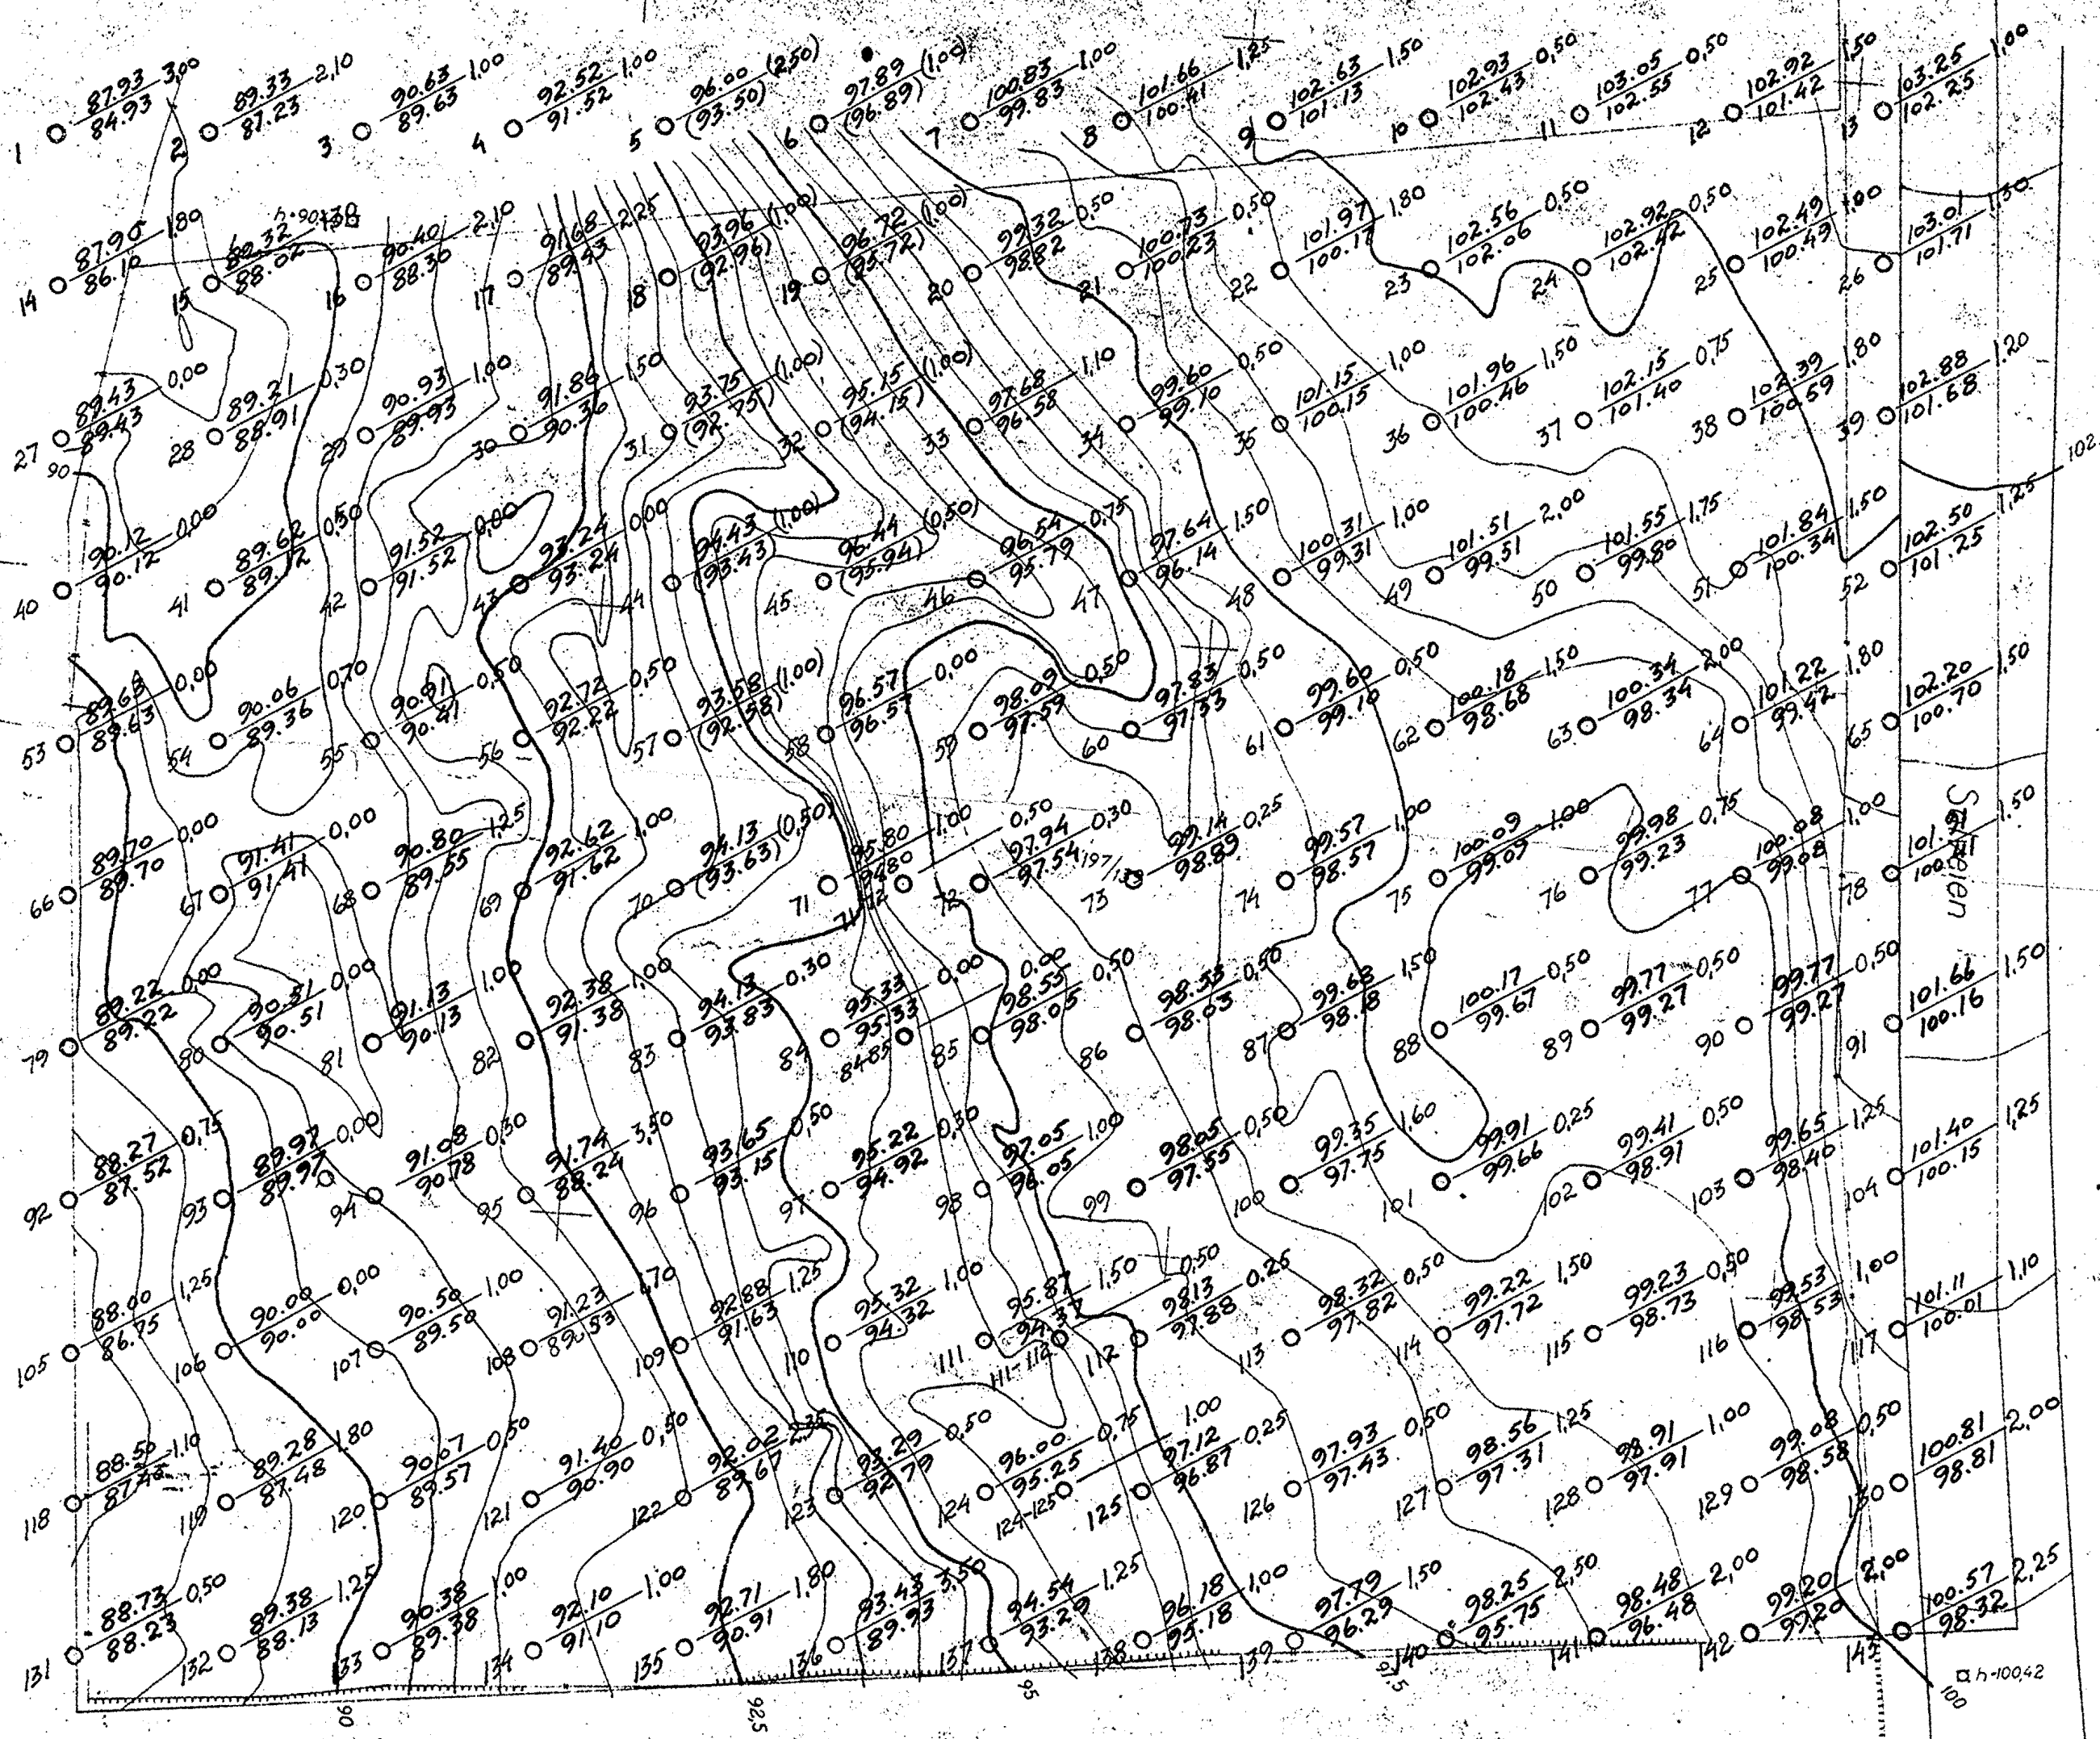 1 87.93 84.93 3,00
2 89.33 87.23 2,10
3 90.63 89.63 1,00
4 92.52 91.52 1,00
5 96.00 (93.50) (2,50)
6 97.89 (96.89) (1,00)
7 100.83 99.83 1,00
8 101.66 100.41 1,25
9 102.63 101.13 1,50
10 102.93 102.43 0,50
11 103.05 102.55 0,50
12 102.92 101.42 1,50
13 103.25 102.25 1,00
14 87.90 86.10 1,80
15 89.32 88.02
16 90.40 88.30 2,10
17 91.68 89.43 2,25
18 93.96 (92.96) (1,00)
19 96.72 (95.72) (1,00)
20 99.32 98.82 0,50
21 100.73 100.23 0,50
22 101.97 100.17 1,80
23 102.56 102.06 0,50
24 102.92 102.42 0,50
25 102.49 100.49
26 103.01 101.71 1,30
27 89.43 89.43 0,00
28 89.21 88.91 0,30
29 90.93 89.93 1,00
30 91.86 90.36 1,50
31 93.75 (92.75) (1,00)
32 95.15 (94.15) (1,00)
33 97.68 96.58 1,10
34 99.60 99.10 0,50
35 101.15 100.15 1,00
36 101.96 100.46 1,50
37 102.15 101.40 0,75
38 102.39 100.59 1,80
39 102.88 101.68 1,20
90
102
40 90.12 90.12 0,00
41 89.62 89.12 0,50
42 91.52 91.52 0,00
43 93.24 93.24 0,00
44 94.43 (93.43) (1,00)
45 96.44 (95.94) (0,50)
46 96.54 95.79 0,75
47 97.64 96.14 1,50
48 100.31 99.31 1,00
49 101.51 99.51 2,00
50 101.55 99.80 1,75
51 101.84 100.34 1,50
52 102.50 101.25 1,25
53 89.63 89.63 0,00
54 90.06 89.36 0,70
55 90.91 90.41 0,50
56 92.72 92.22 0,50
57 93.58 (92.58) (1,00)
58 96.57 96.57 0,00
59 98.09 97.59 0,50
60 97.83 97.33 0,50
61 99.60 99.10 0,50
62 100.18 98.68 1,50
63 100.34 98.34 2,00
64 101.22 99.42 1,80
65 102.20 100.70 1,50
66 89.70 89.70 0,00
67 91.41 91.41 0,00
68 90.80 89.55 1,25
69 92.62 91.62 1,00
70 94.13 (93.63) (0,50)
71 95.80 94.80 1,00
71-72 0,50
72 97.94 97.54 0,30
73 99.14 98.89 0,25
74 99.57 98.57 1,00
75 100.09 99.09 1,00
76 99.98 99.23 0,75
77 100.08 99.08 1,00
78 1,50
79 89.22 89.22 0,00
80 90.51 90.51 0,00
81 91.13 90.13 1,00
82 92.38 91.38 1,00
83 94.13 93.83 0,30
84 95.33 95.33 0,00
84-85 0.00
85 98.55 98.05 0,50
86 98.53 98.03 0,50
87 99.68 98.18 1,50
88 100.17 99.67 0,50
89 99.77 99.27 0,50
90 99.77 99.27 0,50
91 101.66 100.16 1,50
92 88.27 87.52 0,75
93 89.97 89.97 0,00
94 91.08 90.78 0,30
95 91.74 88.24 3,50
96 93.65 93.15 0,50
97 95.22 94.92 0,30
98 97.05 96.05 1,00
99 98.05 97.55 0,50
100 99.35 97.75 1,60
101 99.91 99.66 0,25
102 99.41 98.91 0,50
103 99.65 98.40 1,25
104 101.40 100.15 1,25
105 88.00 86.75 1,25
106 90.00 90.00 0,00
107 90.50 89.50 1,00
108 91.23 89.53 1,70
109 92.88 91.63 1,25
110 95.32 94.32 1,00
111 95.87 94.37 1,50
111-112 0,50
112 98.13 97.88 0.25
113 98.32 97.82 0,50
114 99.22 97.72 1,50
115 99.23 98.73 0,50
116 99.53 98.53 1,00
117 101.11 100.01 1,10
118 88.50 1,10
119 89.28 87.48 1,80
120 90.07 89.57 0,50
121 91.40 90.90 0,50
122 92.02 89.67 2,35
123 93.29 92.79 0,50
124 96.00 95.25 0,75
124-125 1.00
125 97.12 96.87 0,25
126 97.93 97.43 0,50
127 98.56 97.31 1,25
128 98.91 97.91 1,00
129 99.08 98.58 0,50
130 100.81 98.81 2,00
131 88.73 88.23 0,50
132 89.38 88.13 1,25
133 90.38 89.38 1,00
134 92.10 91.10 1,00
135 92.71 90.91 1,80
136 93.43 89.93 3,50
137 94.54 93.29 1,25
138 96.18 95.18 1,00
139 97.79 96.29 1,50
140 98.25 95.75 2,50
141 98.48 96.48 2,00
142 99.20 99.20 2,00
143 100.57 98.32 2,25
90
92,5
95
97.5
100
h-100,42